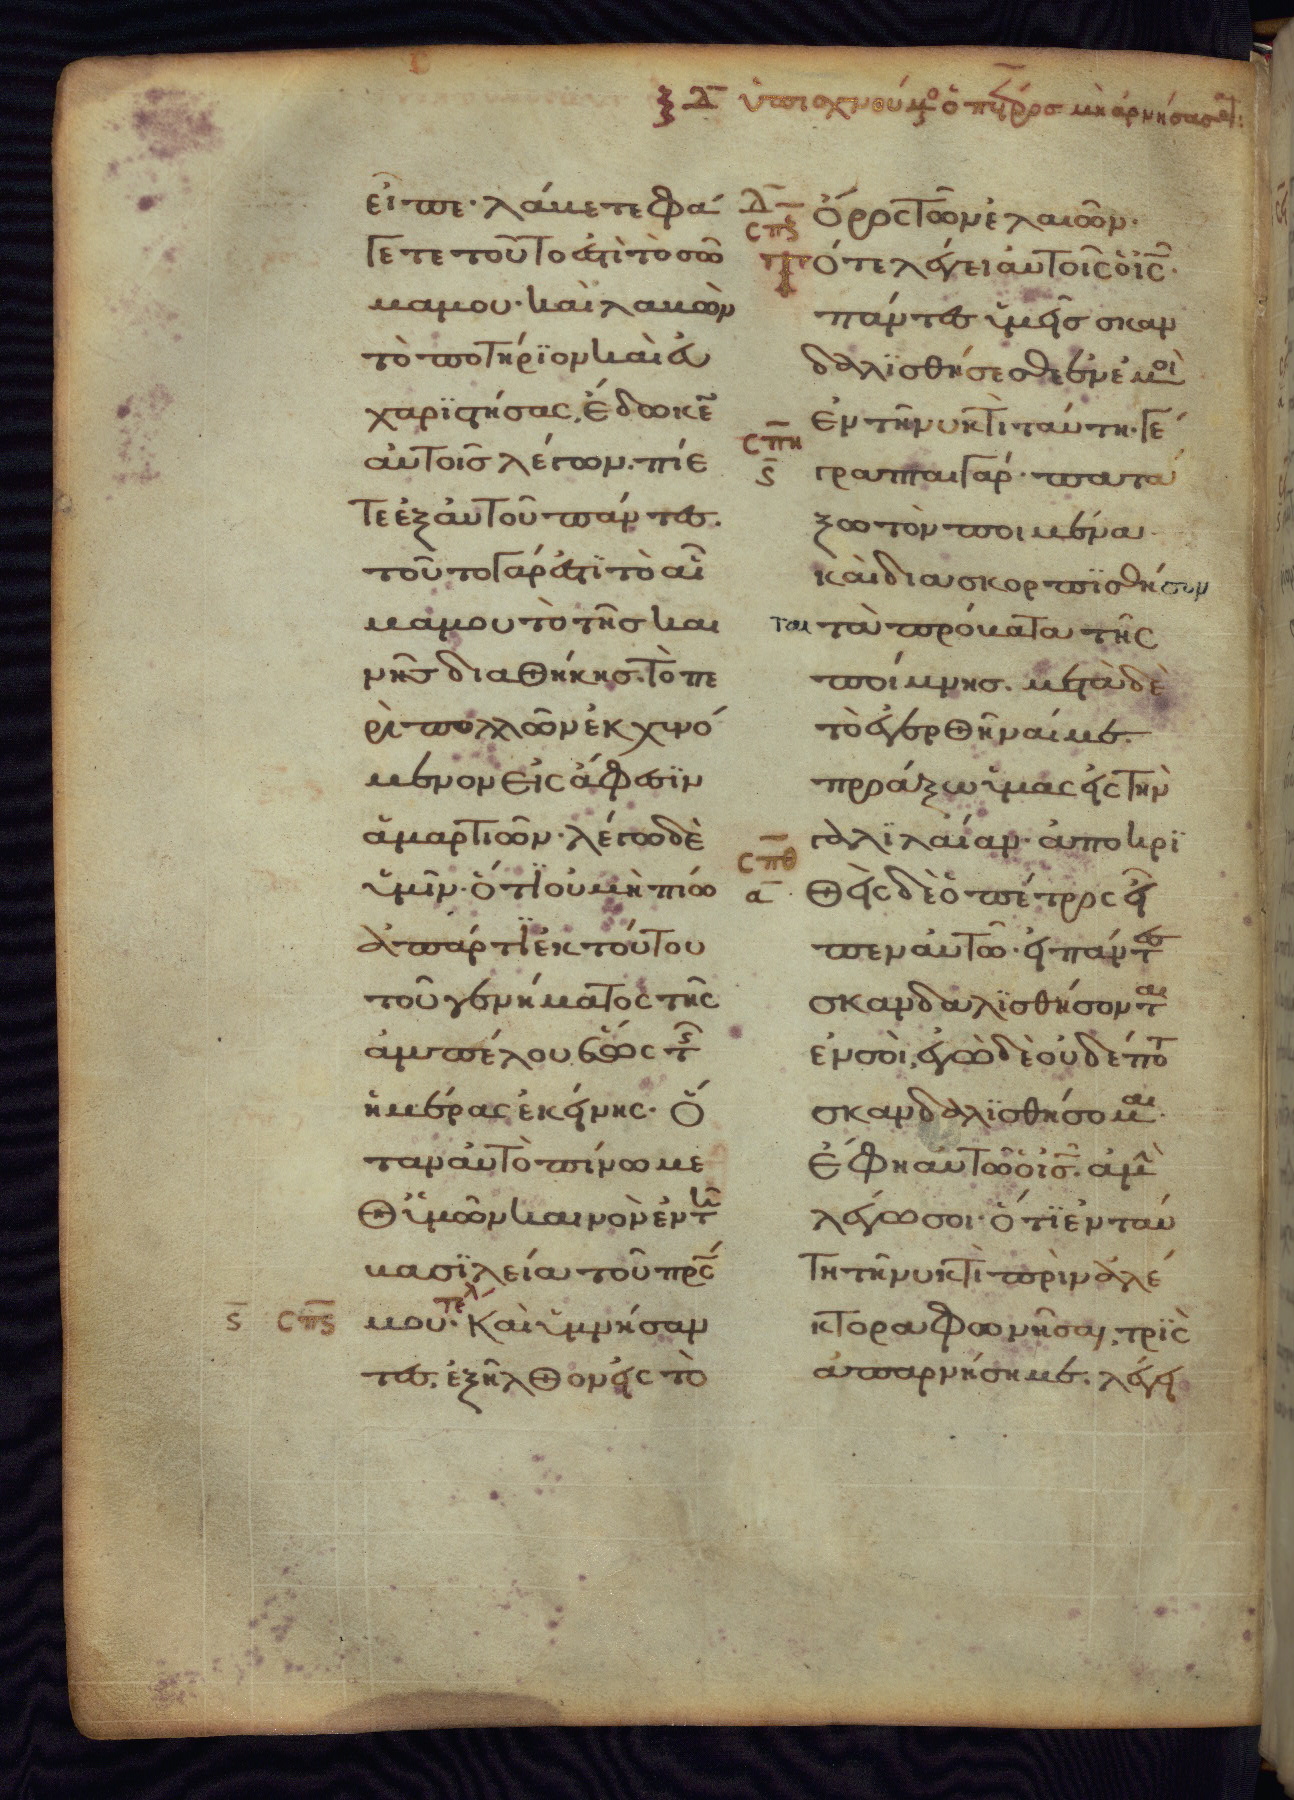 ξδ ὑπισχνούμενος ὁ πέτρος μὴ ἀρνήσασθαι:
εἶπε· λάβετε φά
γετε τοῦτο ἐστὶ τὸ σῶ
μα μου· καὶ λαβὼν
τὸ ποτήρϊον καὶ εὐ
χαρϊστήσας, ἔδωκεν
αὐτοῖς λέγων· πίε
τε ἐξ αὐτοῦ πάντες.
τοῦτο γάρ ἐστϊ τὸ αἷ
μά μου τὸ τῆς και
νῆς διαθήκης. τὸ πε
ρὶ πολλῶν ἐκχυνό
μενον εἰς ἄφεσϊν
ἁμαρτιῶν· λέγω δὲ
ὑμῖν· ὅτϊ οὐ μὴ πίω
ἀπάρτϊ ἐκ τούτου
τοῦ γενήματος τῆς
ἀμπέλου ἕως τῆς
ἡμέρας ἐκείνης· ὅ
ταν αὐτὸ πίνω με
θ ὑμῶν καινὸν ἐν τῆ
βασϊλεία τοῦ πρς
ς̅ σπς μου· τελ Καὶ ὑμνήσαν
τες, ἐξῆλθον εἰς τὸ
δ σπζ ὄρος τῶν ἐλαιῶν·
Τότε λέγει αὐτοῖς ὁ ις·
πάντες ὑμεῖς σκαν
δαλϊσθήσεσθε ἐν ἐμοὶ
ἐν τῆ νυκτὶ ταύτη· γέ
σπη ς̅ γραπται γάρ· πατά
ξω τὸν ποιμένα·
καὶ διασκορπϊσθήσον
ται τὰ πρόβατα τῆς
ποίμνης. μετὰ δὲ
τὸ ἐγερθῆναί με.
προάξω ὑμας εἰς τὴν
γαλϊλαίαν· ἀποκρϊ
σπθ α θεὶς δὲ ὁ πέτρος εἶ
πεν αὐτῶ· εἰ πάντες
σκανδαλϊσθήσονται
ἐν σοὶ, ἐγὼ δὲ οὐδέποτ
σκανδαλϊσθήσομαι·
ἔφη αὐτῶ ὁ ις· ἀμὴν
λέγω σοι· ὅτϊ ἐν ταύ
τη τῆ νυκτὶ πρὶν ἀλέ
κτορα φωνῆσαι, τρὶς
ἀπαρνήση με. λέγει